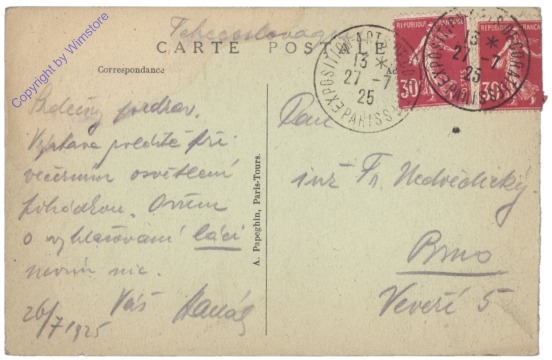 Tchecoslovaquie
CARTE POSTALE
Correspondance
Srdečný pozdrav.
Výstava pohádkou. Ovšem
večerním osvětlení
o vyhlašovaní
nevím nic.
26/7 1925
Váš Hanák
A. Papeghin, Paris-Tours.
Pan
inž. Fr. Nedvědický
Brno
Veveří 5
REPUBLIQUE FRANÇAISE
30
REPUBLIQUE
30
EXPOSITION ARTS DECORATIFS
13 *
27 - 7
25
PARIS
13 *
27 - 7
25
PARIS
Copyright by Wimstore